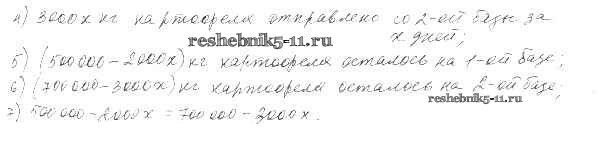 4) 3000х кг картофеля отправлено со 2-ой базы за
х дней;
reshebnik5-11.ru
5) (500000-2000х)кг картофеля осталось на 1-ой базе;
6) (700000-3000х)кг картофеля осталось на 2-ой базе;
reshebnik5-11.ru
7) 500000-2000х=700000-3000х.